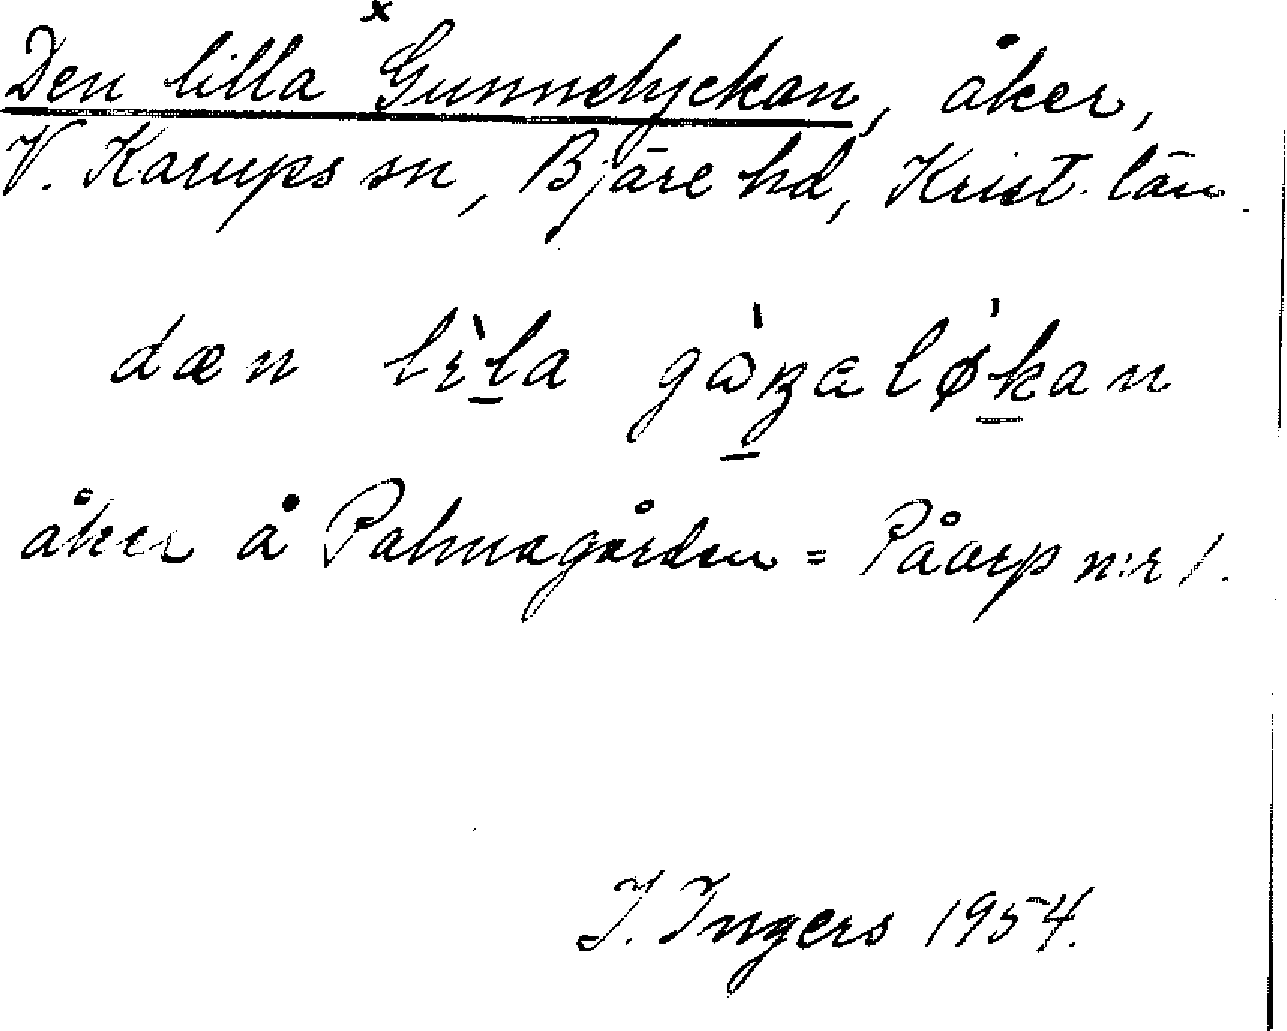 x
Den lilla Gunnelyckan, åker,
V. Karups sn, Bjäre hd, Krist. län.
dæn
åker å Palmagården = Påarp n:r 1.
J. Ingers 1954.